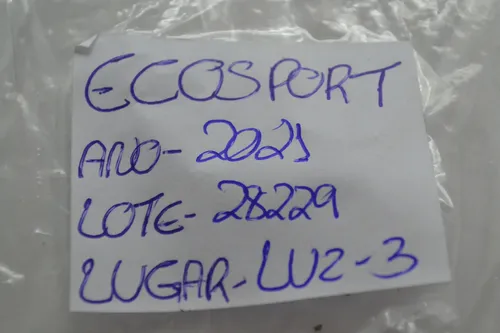 ECOSPORT
ANO- 2021
LOTE- 28229
LUGAR-LUZ-3